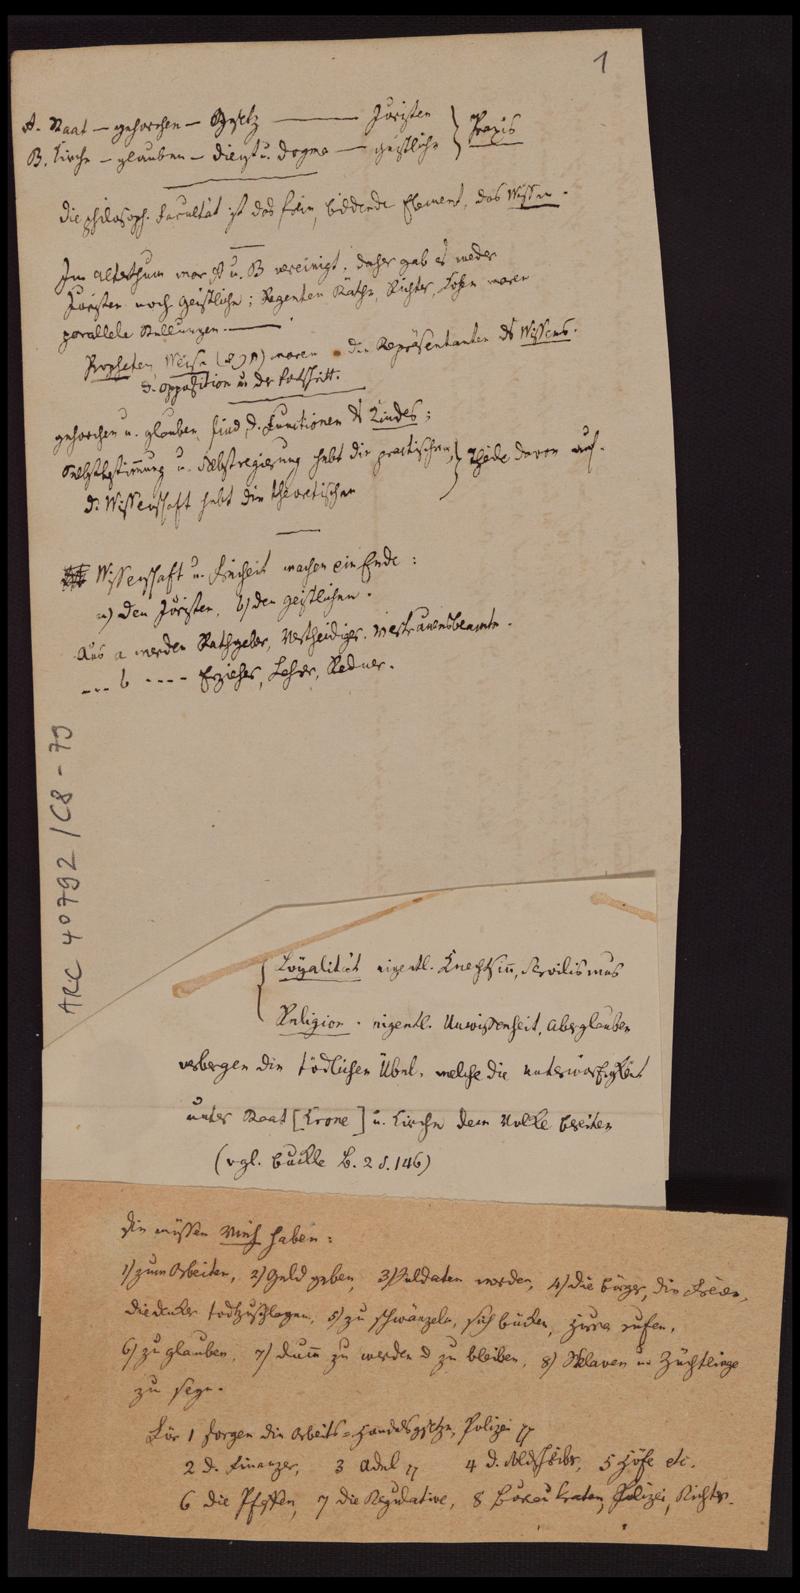 1
A. Staat — gehorchen — Gesetz ——— Juristen
B. Kirche — glauben — Dienst u. Dogma — Geistliche } Praxis
Die philosoph. Facultät ist das freie, bildende Element, das Wissen.
Im Alterthum war A u. B vereinigt, daher gab es weder
Juristen noch Geistliche; Regenten Räthe, Richter, waren
parallele Stellungen.
Propheten, Weise waren die Repräsentanten des Wissens.
d. Opposition u. der Fortschritt.
gehorchen u. glauben sind d. Functionen des Kindes;
Selbstbestimmung u. Selbstregierung hebt die practischen,
d. Wissenschaft hebt die theoretischen } Theile davon auf.
Wissenschaft u. Freiheit machen ein Ende:
a) den Juristen, b) den Geistlichen.
Aus a werden Rathgeber, Vertheidiger, Vertrauensbeamte.
--- b ---- Erzieher, Lehrer, Redner.
ARC 40792/C8-79
{ Loyalität eigentl. Knechtsinn, Servilismus
Religion . eigentl. Unwissenheit, Aberglauben
verbergen die tödlichen Übel, welche die Unterwürfigkeit
unter Staat [Krone] u. Kirche dem Volke bereiten
(vgl. Buckle B. 2 S. 146)
Sie müssen Vieh haben:
1) zum Arbeiten, 2) Geld geben, 3) Soldaten werden, 4) die Bürger, die Freien,
die Denker todtzuschlagen, 5) zu schwänzeln, sich bücken, Hurra rufen,
6) zu glauben, 7) dumm zu werden & zu bleiben, 8) Sklaven u. Züchtlinge
zu seyn.
Für 1 sorgen die Arbeits- Handelsgesetze, Polizei
2 d. Finanzer, 3 Adel 4 d. 5 Höfe etc.
6 die Pfaffen, 7 die Regulative, 8 Bureukraten, Polizei, Richter.